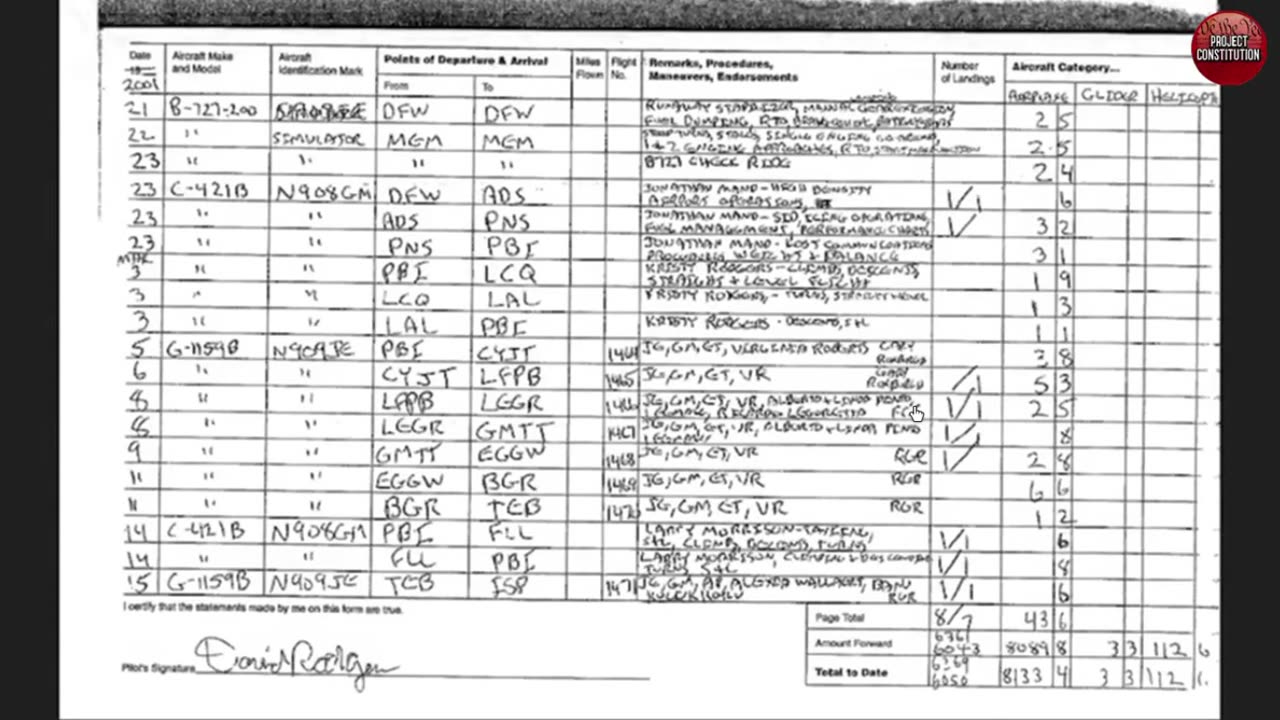 We the Pe
PROJECT
CONSTITUTION
Date Aircraft Make and Model Aircraft Identification Mark Points of Departure & Arrival From To Miles Flown Flight No. Remarks, Procedures, Maneuvers, Endorsements Number of Landings Aircraft Category...
2001 AIRPLANE GLIDER HELICOPT
21 B-727-200 DFW DFW RUNAWAY STABILIZER, MANUAL GEAR EXTENSION FUEL DUMPING, RTO 2 5
22 " SIMULATOR MEM MEM STEEP TURNS, STALLS, SINGLE ENGINE GO AROUND, 1 & 2 ENGINE APPROACHES, RTO 2.5
23 " " " " B727 CHECK RIDE 2 4
23 C-421B N908GM DFW ADS JONATHAN MANO - HIGH DENSITY AIRPORT OPERATIONS, 1/1 6
23 " " ADS PNS JONATHAN MANO - SID, ICING OPERATIONS, FUEL MANAGEMENT, PERFORMANCE CHARTS 1/ 3 2
23 " " PNS PBI JONATHAN MANO - LOST COMMUNICATIONS PROCEDURES WEIGHT & BALANCE 3 1
MAR
3 " " PBI LCQ KRISTY RODGERS - CLIMBS, DESCENTS, STRAIGHT + LEVEL FLIGHT 1 9
3 " " LCQ LAL KRISTY RODGERS, - TURNS, STRAIGHT + LEVEL 1 3
3 " " LAL PBI KRISTY RODGERS - DESCEND, S+L 1 1
5 G-1159B N909JE PBI CYJT 1464 JE, GM, ET, VIRGINIA ROBERTS GARY ROXBURGH 3 8
6 " " CYJT LFPB 1465 JE, GM, ET, VR GARY ROXBURGH 1/1 5 3
8 " " LFPB LEGR 1466 JE, GM, ET, VR, ALBERTO + LINDA PINTO 1/1 2 5
8 " " LEGR GMTT 1467 JE, GM, ET, VR, ALBERTO + LINDA PINTO 1/ 8
9 " " GMTT EGGW 1468 JE, GM, ET, VR RGR 1/ 2 8
11 " " EGGW BGR 1469 JE, GM, ET, VR RGR 6 6
11 " " BGR TEB 1470 JE, GM, ET, VR RGR 1 2
14 C-421B N908GM PBI FLL LARRY MORRISON - S+L, CLIMB, DESCEND, TURNS 1/1 6
14 " " FLL PBI LARRY MORRISON, TURNS S+L 1/1 8
15 G-1159B N909JE TEB ISP 1471 JE, GM, AP, ALEXIA WALLAERT, BANU RGR 1/1 6
I certify that the statements made by me on this form are true.
Page Total 8/7 43 6
Amount Forward 6361 6043 8089 8 3 3 112 6
Pilot's Signature David Rodgers
Total to Date 6369 6050 8133 4 3 3 112